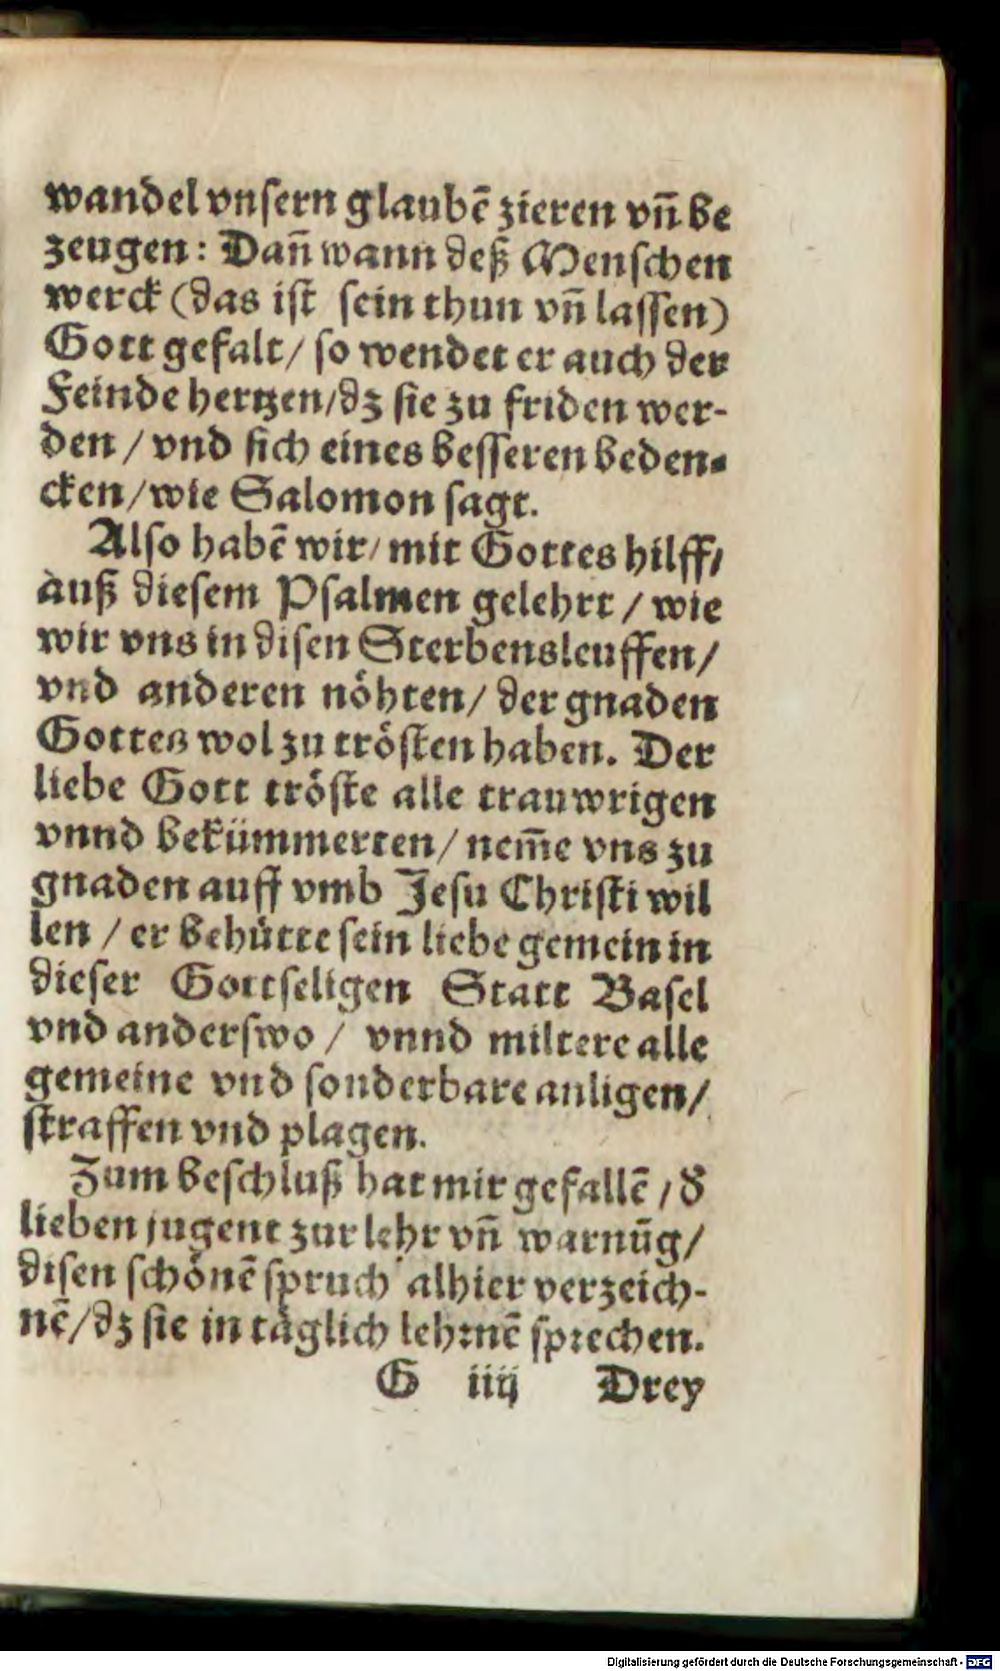 wandel vnſern glaubẽ zieren vñ be
zeugen: Dañ wann deß Menſchen
werck (das iſt ſein thun vñ laſſen)
Gott gefalt/ ſo wendet er auch der
Feinde hertzen/dz ſie zu friden wer-
den / vnd ſich eines beſſeren beden-
cken/wie Salomon ſagt.
Alſo habẽ wir/ mit Gottes hilff/
auß dieſem Pſalmen gelehrt / wie
wir vns in diſen Sterbensleuffen/
vnd anderen nöhten/ der gnaden
Gottes wol zu tröſten haben. Der
liebe Gott tröſte alle trauwrigen
vnnd bekümmerten/ nem̃e vns zu
gnaden auff vmb Jeſu Chriſti wil
len / er behütte ſein liebe gemein in
dieſer Gottſeligen Statt Baſel
vnd anderſwo / vnnd miltere alle
gemeine vnd ſonderbare anligen/
ſtraffen vnd plagen.
Zum beſchluß hat mir gefallẽ / d̕
lieben jugent zur lehr vñ warnũg/
diſen ſchönẽ ſpruch alhier verzeich-
nẽ/dz ſie in täglich lehꝛnẽ ſpꝛechen.
G iiij Drey
Digitalisierung gefördert durch die Deutsche Forschungsgemeinschaft - DFG